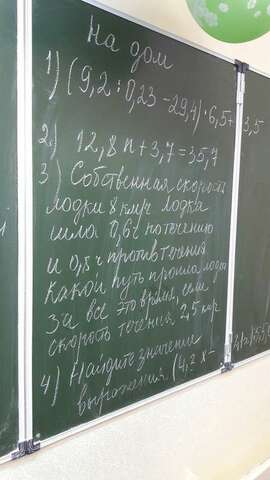 На дом
1) (9,2 : 0,23 - 29,4) · 6,5 + 3,5
2) 12,8 n + 3,7 = 35,7
3) Собственная скорость
лодки 8 км/ч лодка
шла 0,6 ч по течению
и 0,5 ч против течения
какой путь прошла лодка
за все это время, если
скорость течения 2,5 км/ч
4) Найдите значение
выражения (4,2 x -